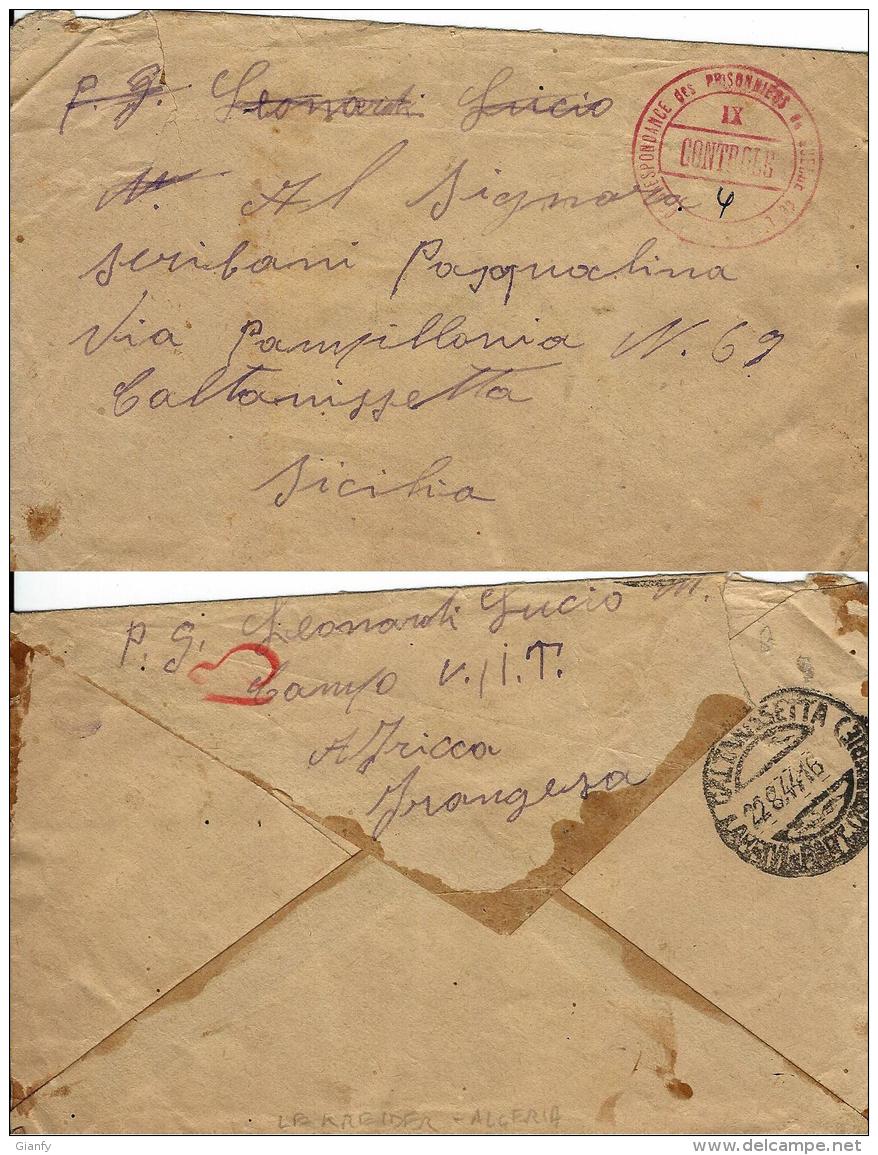 P. G. Leonardi Lucio
CORRESPONDANCE des PRISONNIERS de GUERRE
IX
CONTROLE
4
Al Signora
Scribani Pasqualina
Via Pampillonia N. 69
Caltanissetta
Sicilia
P. G. Leonardi Lucio M.
Campo V./I.T.
Africca
Frangesa
CALTANISSETTA
22.8.44.16
LE KREIDER - ALGERIA
Gianfy
delcampe.net